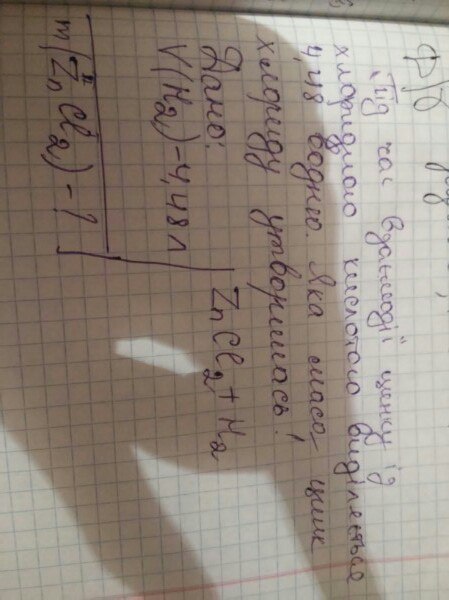 Д/б
Під час взаємодії цинку із
хлоридною кислотою виділяється
4,48 водню. Яка маса цинк
хлориду утворилась!
Дано:
V(H2)-4,48л
ZnCl2+H2
m(ZnCl2)-?